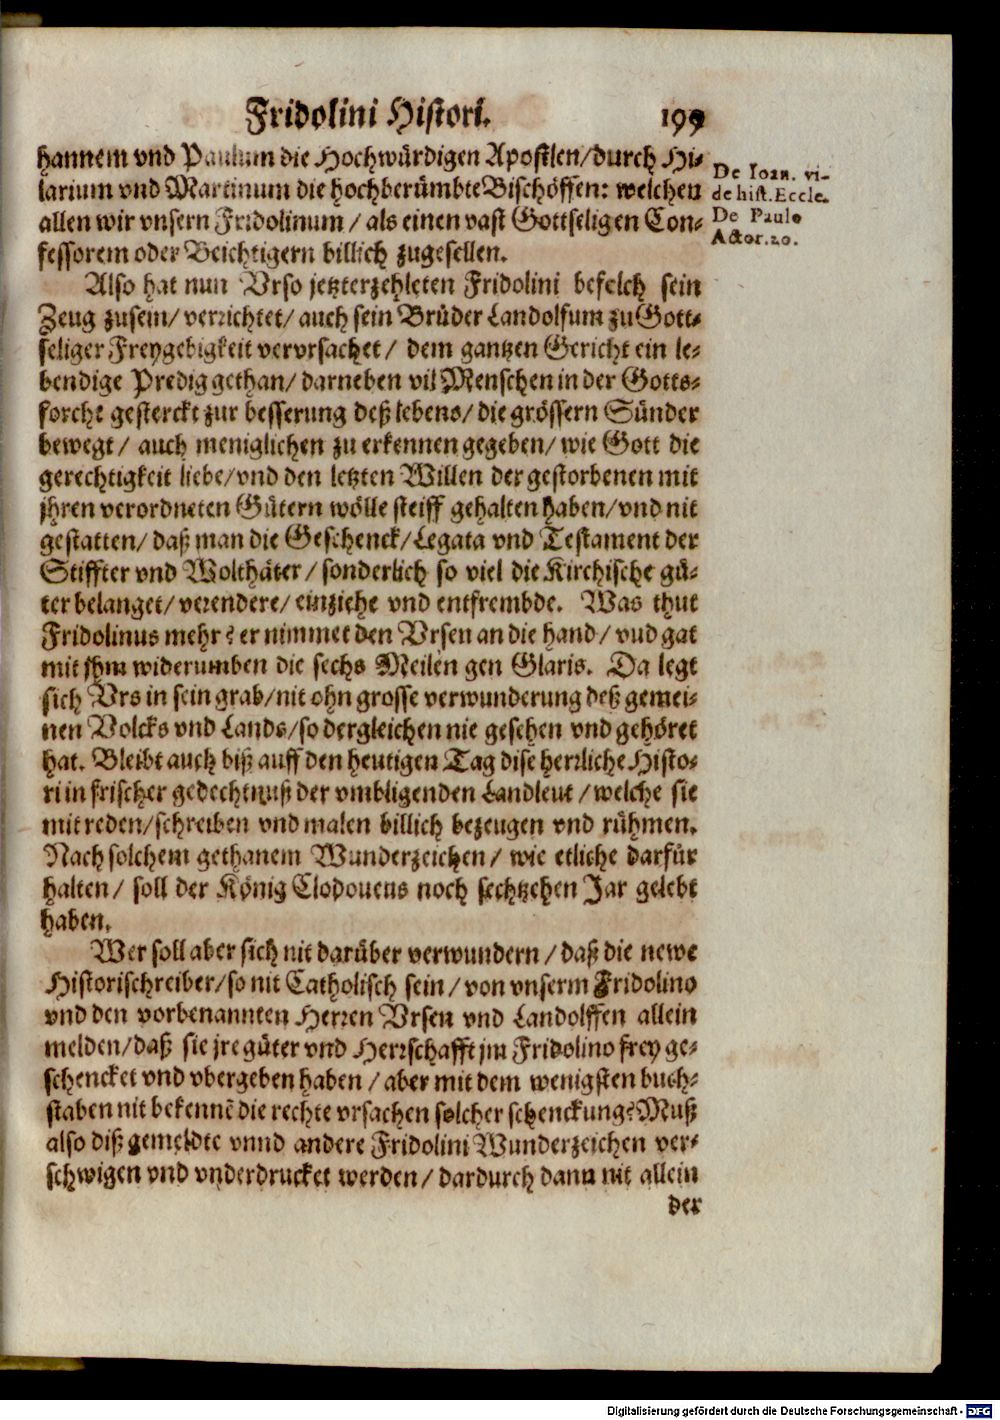 Fridolini Histori. 199
hannem vnd Paulum die Hochwürdigen Apostlen/durch Hi-
larium vnd Martinum die hochberümbte Bischöffen: welchen
allen wir vnsern Fridolinum / als einen vast Gottseligen Con-
fessorem oder Beichtigern billich zugesellen.
De Ioan. vi-
de hist. Eccle.
De Paulo
Actor.20.
Also hat nun Vrso jetzterzehleten Fridolini befelch sein
Zeug zusein/ verrichtet/ auch sein Brüder Landolfum zu Gott-
seliger Freygebigkeit vervrsachet/ dem gantzen Gericht ein le-
bendige Predig gethan/ darneben vil Menschen in der Gotts-
forcht gesterckt zur besserung deß lebens/ die grössern Sünder
bewegt/ auch meniglichen zu erkennen gegeben/ wie Gott die
gerechtigkeit liebe/vnd den letzten Willen der gestorbenen mit
jhren verordneten Gütern wölle steiff gehalten haben/vnd nit
gestatten/ daß man die Geschenck/Legata vnd Testament der
Stiffter vnd Wolthäter/ sonderlich so viel die Kirchische gü-
ter belanget/ verendere/ einziehe vnd entfrembde. Was thut
Fridolinus mehr? er nimmet den Vrsen an die hand/ vnd gat
mit jhm widerumben die sechs Meilen gen Glaris. Da legt
sich Vrs in sein grab/nit ohn grosse verwunderung deß gemei-
nen Volcks vnd Lands/so dergleichen nie gesehen vnd gehöret
hat. Bleibt auch biß auff den heutigen Tag dise herrliche Histo-
ri in frischer gedechtnuß der vmbligenden Landleut/welche sie
mit reden/schreiben vnd malen billich bezeugen vnd rühmen.
Nach solchem gethanem Wunderzeichen/ wie etliche darfür
halten/ soll der König Clodoueus noch sechtzehen Jar gelebt
haben.
Wer soll aber sich nit darüber verwundern/daß die newe
Historischreiber/so nit Catholisch sein/von vnserm Fridolino
vnd den vorbenannten Herren Vrsen vnd Landolffen allein
melden/daß sie jre güter vnd Herrschafft jm Fridolino frey ge-
schencket vnd vbergeben haben/aber mit dem wenigsten buch-
staben nit bekennē die rechte vrsachen solcher schenckung? Muß
also diß gemeldte vnnd andere Fridolini Wunderzeichen ver-
schwigen vnd vnderdrucket werden/ dardurch dann nit allein
der
Digitalisierung gefördert durch die Deutsche Forschungsgemeinschaft - DFG